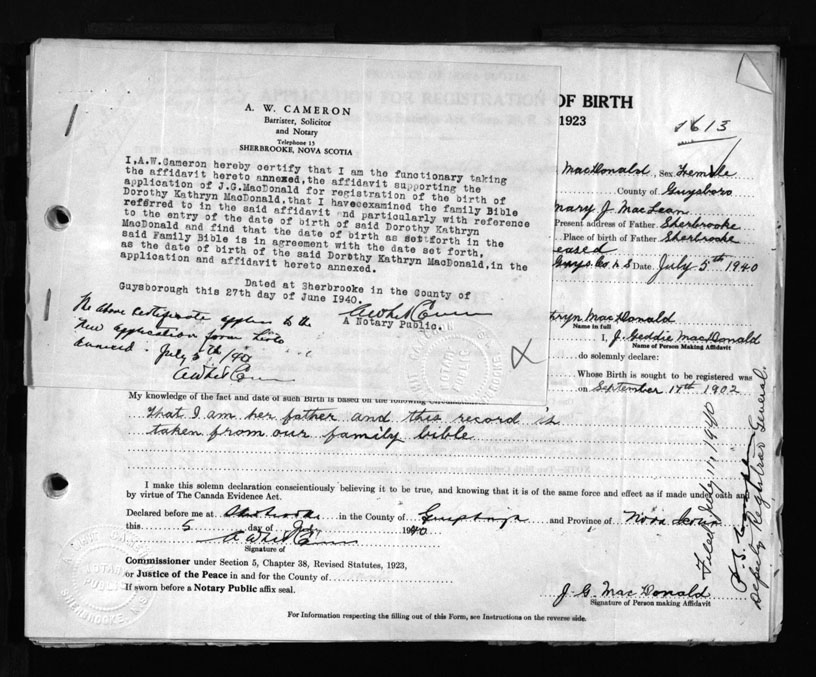 A. W. CAMERON
Barrister, Solicitor
and Notary
Telephone 13
SHERBROOKE, NOVA SCOTIA
I,A.W.Cameron hereby certify that I am the functionary taking
the affidavit hereto annexed, the affidavit supporting the
application of J.G.MacDonald for registration of the birth of
Dorothy Kathryn MacDonald, that I have examined the family Bible
referred to in the said affidavit and particularly with reference
to the entry of the date of birth of said Dorothy Kathryn
MacDonald and find that the date of birth as set forth in the
said Family Bible is in agreement with the date set forth,
as the date of birth of the said Dorothy Kathryn MacDonald, in the
application and affidavit hereto annexed.
Dated at Sherbrooke in the County of
Guysborough this 27th day of June 1940.
A Notary Public.
The above certificate applies to the
new application form hereto
annexed - July 5th, 1940
OF BIRTH
1923
MacDonald, Sex Female
County of Guysboro
Mary J. MacLean
Present address of Father Sherbrooke
Place of birth of Father Sherbrooke
eased
Guys. Co. N S Date July 5th 1940
thryn MacDonald
Name in full
I, J. Geddie MacDonald
Name of Person Making Affidavit
do solemnly declare:
Whose Birth is sought to be registered was
on September 17th 1902
My knowledge of the fact and date of such Birth is based on the following
That I am her father and this record is
taken from our family bible
I make this solemn declaration conscientiously believing it to be true, and knowing that it is of the same force and effect as if made under oath and
by virtue of The Canada Evidence Act.
Declared before me at Sherbrooke in the County of Guysborough and Province of Nova Scotia
this 5 day of July 1940
Signature of
Commissioner under Section 5, Chapter 38, Revised Statutes, 1923,
or Justice of the Peace in and for the County of
If sworn before a Notary Public affix seal.
J. G. MacDonald
Signature of Person making Affidavit
For Information respecting the filling out of this Form, see Instructions on the reverse side.
Filed July 11, 1940
Deputy Registrar General.